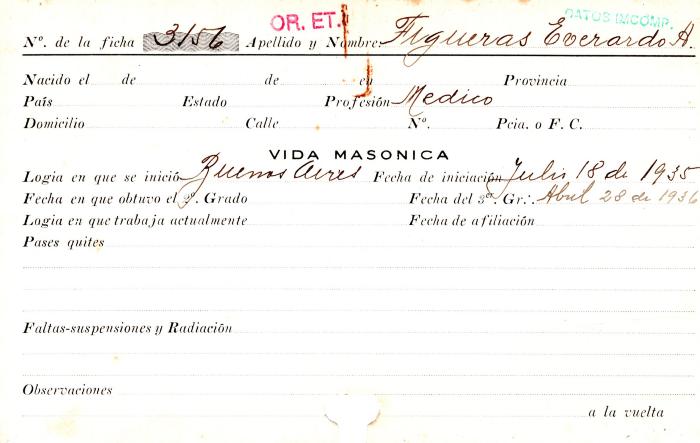 OR. ET. DATOS IMCOMP.
Nº. de la ficha 3156 Apellido y Nombre: Figueras Everardo A.
Nacido el de de en Provincia
País Estado Profesión Medico
Domicilio Calle Nº. Pcia. o F. C.
VIDA MASONICA
Logia en que se inició Buenos Aires Fecha de iniciación Julio 18 de 1935
Fecha en que obtuvo el 2º. Grado Fecha del 3er. Gr∴ Abril 28 de 1936
Logia en que trabaja actualmente Fecha de afiliación
Pases quites
Faltas-suspensiones y Radiación
Observaciones
a la vuelta